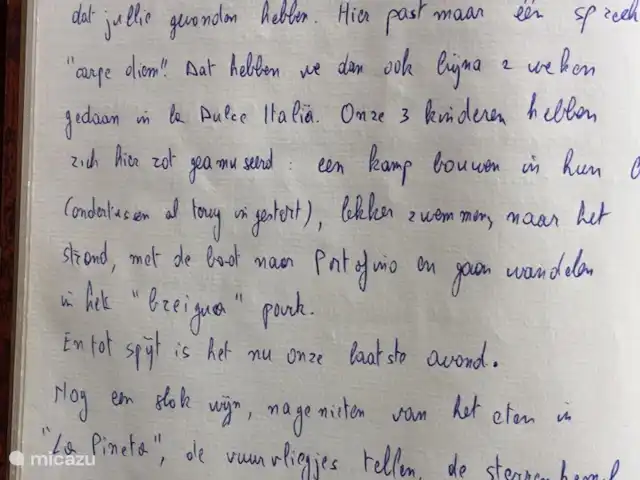 dat jullie gevonden hebben. Hier past maar één spreek
"carpe diem"! Dat hebben we dan ook bijna 2 weken
gedaan in la Dulce Italië. Onze 3 kinderen hebben
zich hier zot geamuseerd: een kamp bouwen in hun
(ondertussen al terug ingestort), lekker zwemmen, naar het
strand, met de boot naar Portofino en gaan wandelen
in het "Breigua" park.
En tot spijt is het nu onze laatste avond.
Nog een slok wijn, nagenieten van het eten in
"La Pineta", de vuurvliegjes tellen, de sterrenhemel
micazu